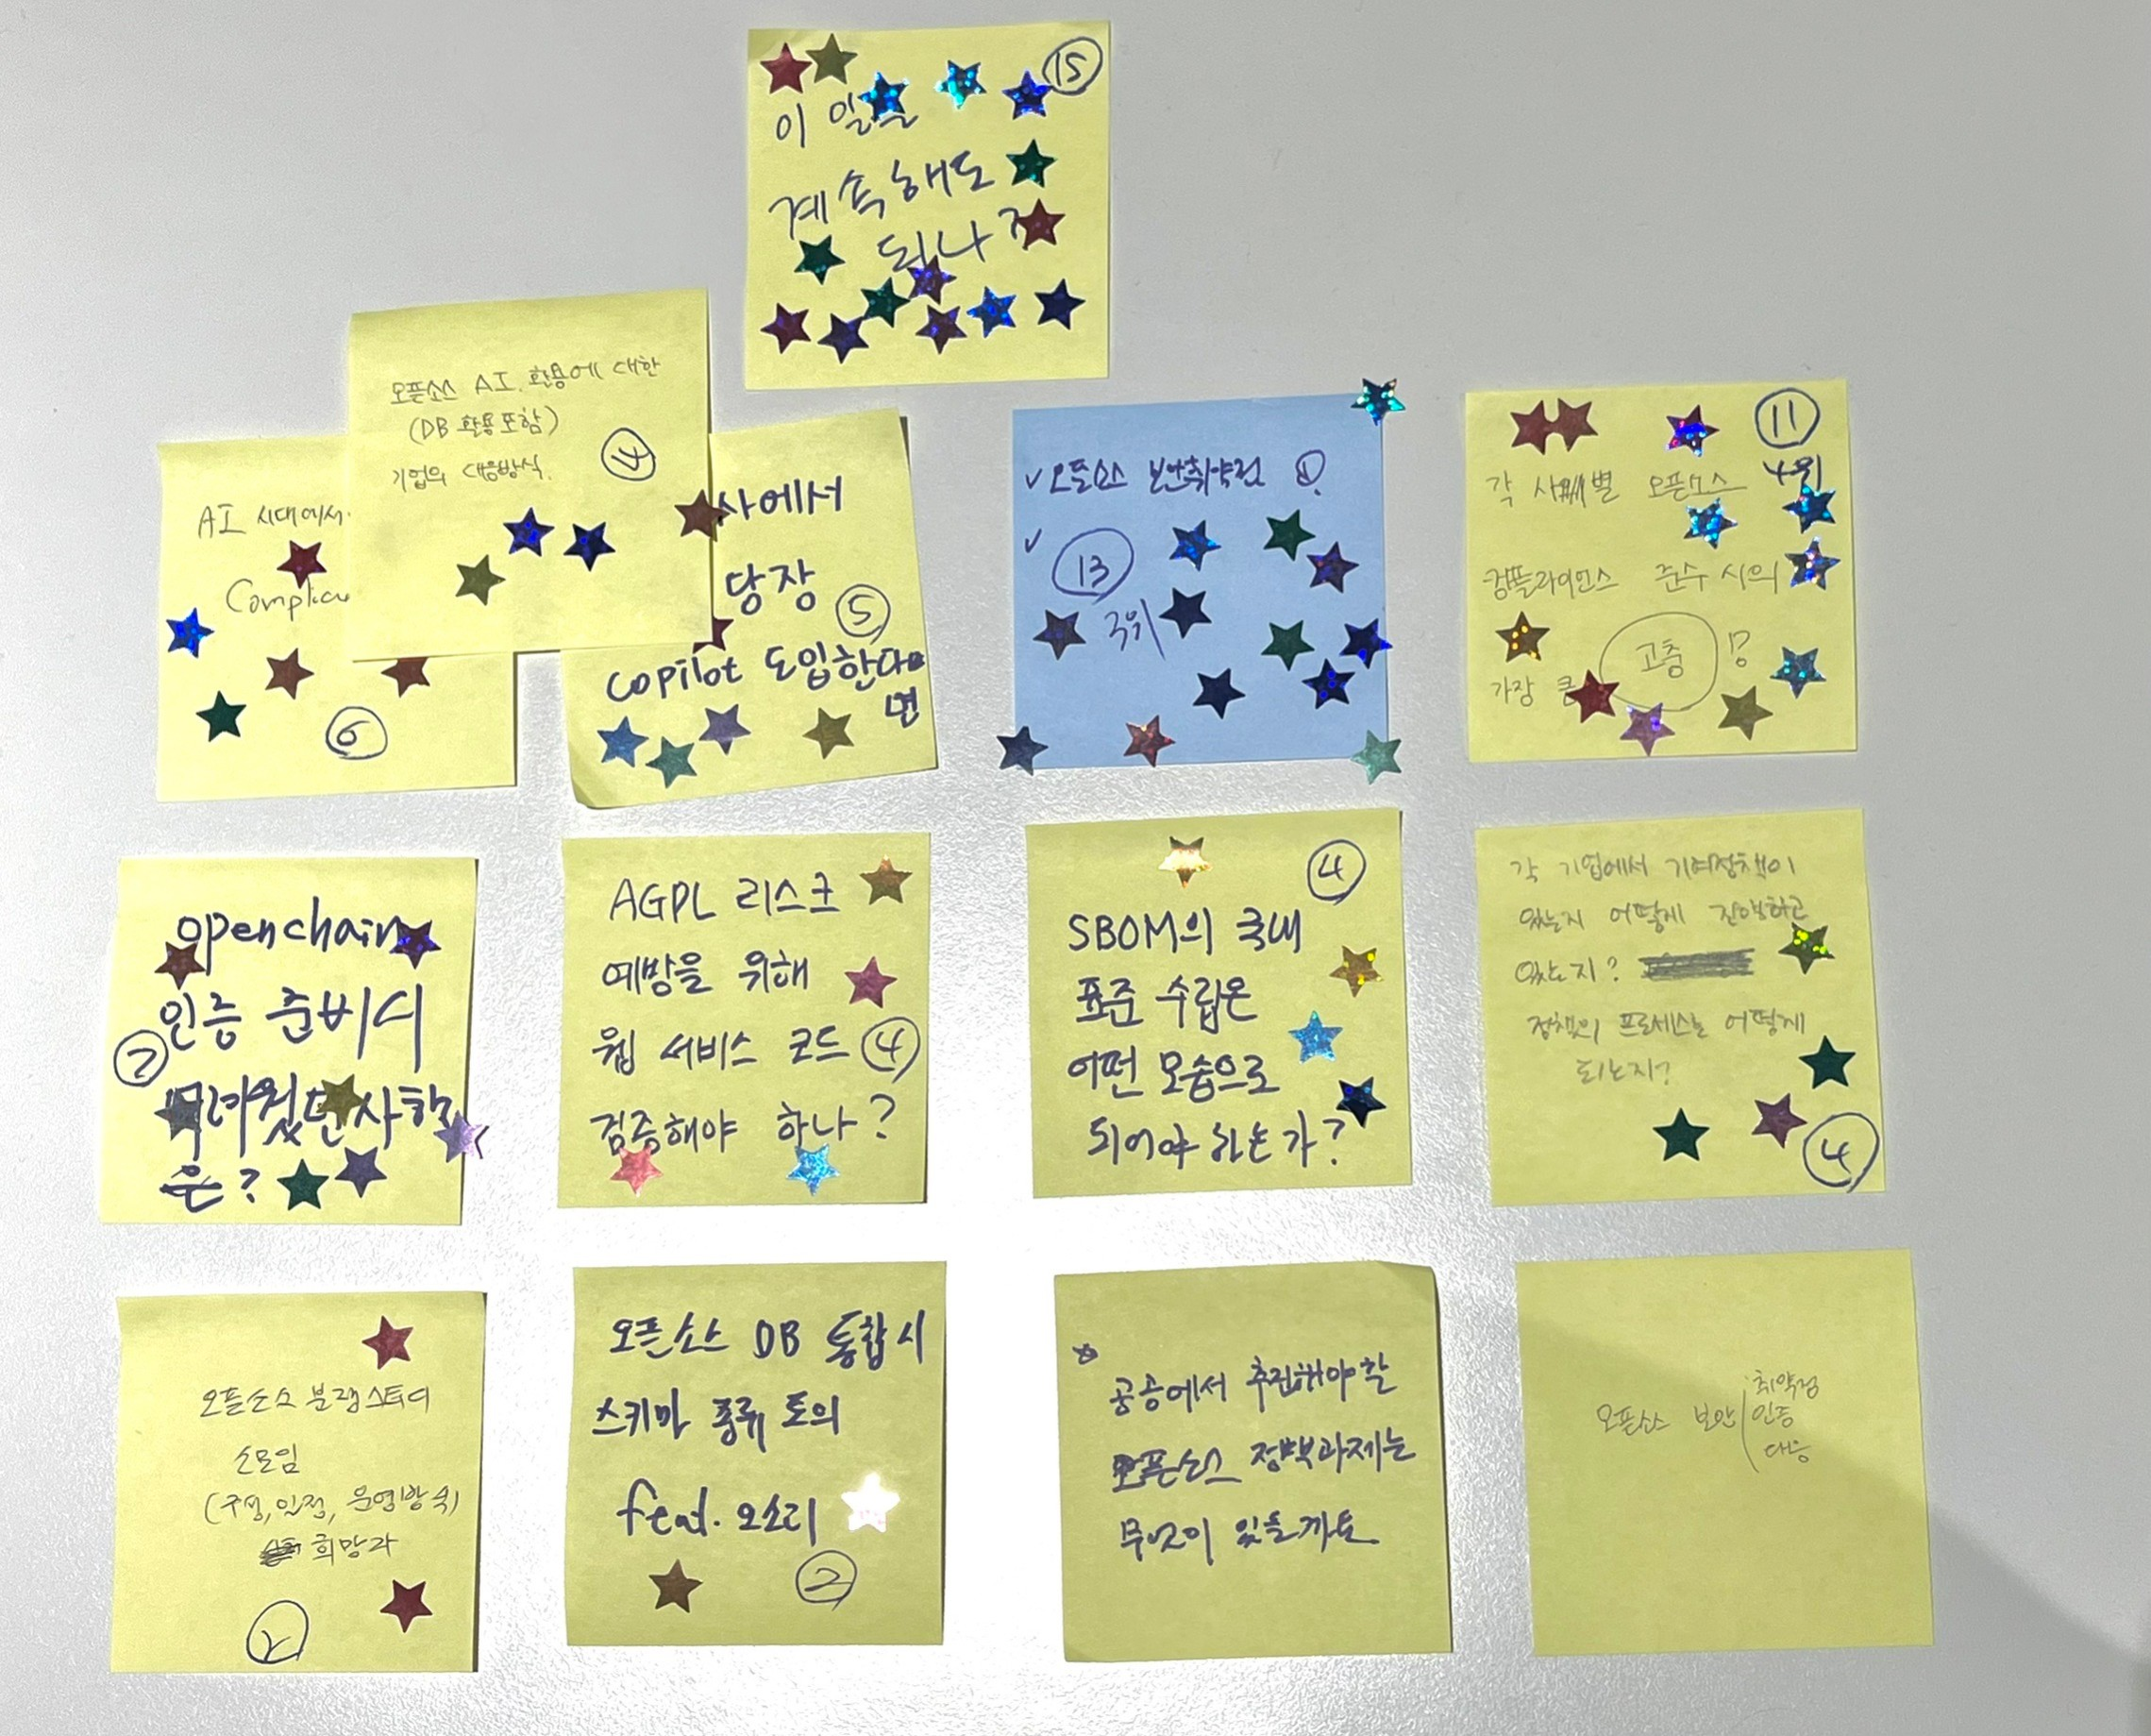 15
이 일을
계속해도
되나?
오픈소스 AI 활용에 대한
(DB 활용포함)
기업의 대응방식.
4
AI 시대에서
6
사에서
당장
5
copilot 도입한다
면
✓ 오픈소스 보안취약점
✓
13
11
각 사별 오픈소스 4위
컴플라이언스 준수 시의
가장 큰 고충
openchain
인증 준비시
어려웠던 사항
은?
AGPL 리스크
예방을 위해
웹 서비스 코드 4
검증해야 하나?
4
SBOM의 국내
표준 수립은
어떤 모습으로
되어야 하는가?
각 기업에서 기여정책이
있는지 어떻게 진행하고
있는지?
정책의 프로세스는 어떻게
되는지?
4
오픈소스 분쟁스터디
소모임
(구성, 일정, 운영방식)
희망자
2
오픈소스 DB 통합시
스키마 종류 토의
feat. 오소리
2
공공에서 추진해야할
오픈소스 정책과제는
무엇이 있을까요
오픈소스 보안
취약점
인증
대응